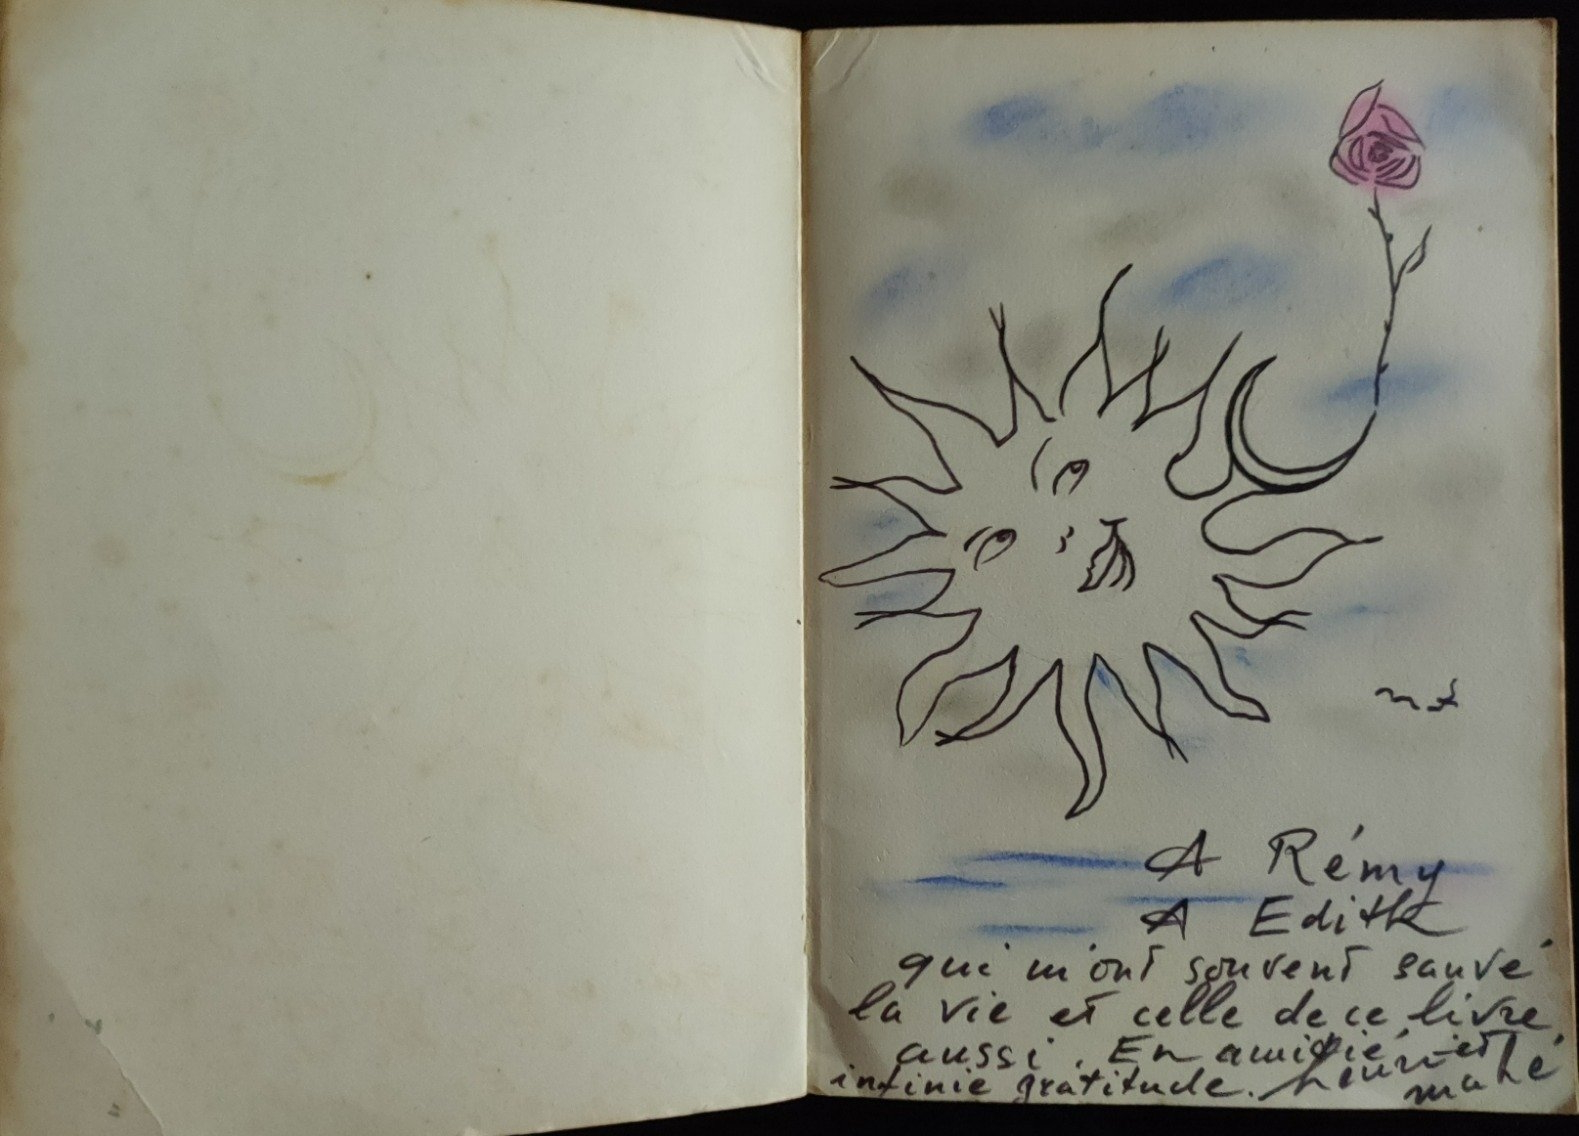 A Rémy
A Edith
qui m'ont souvent sauvé
la vie et celle de ce livre
aussi. En amitié et
infinie gratitude. henri
mahé